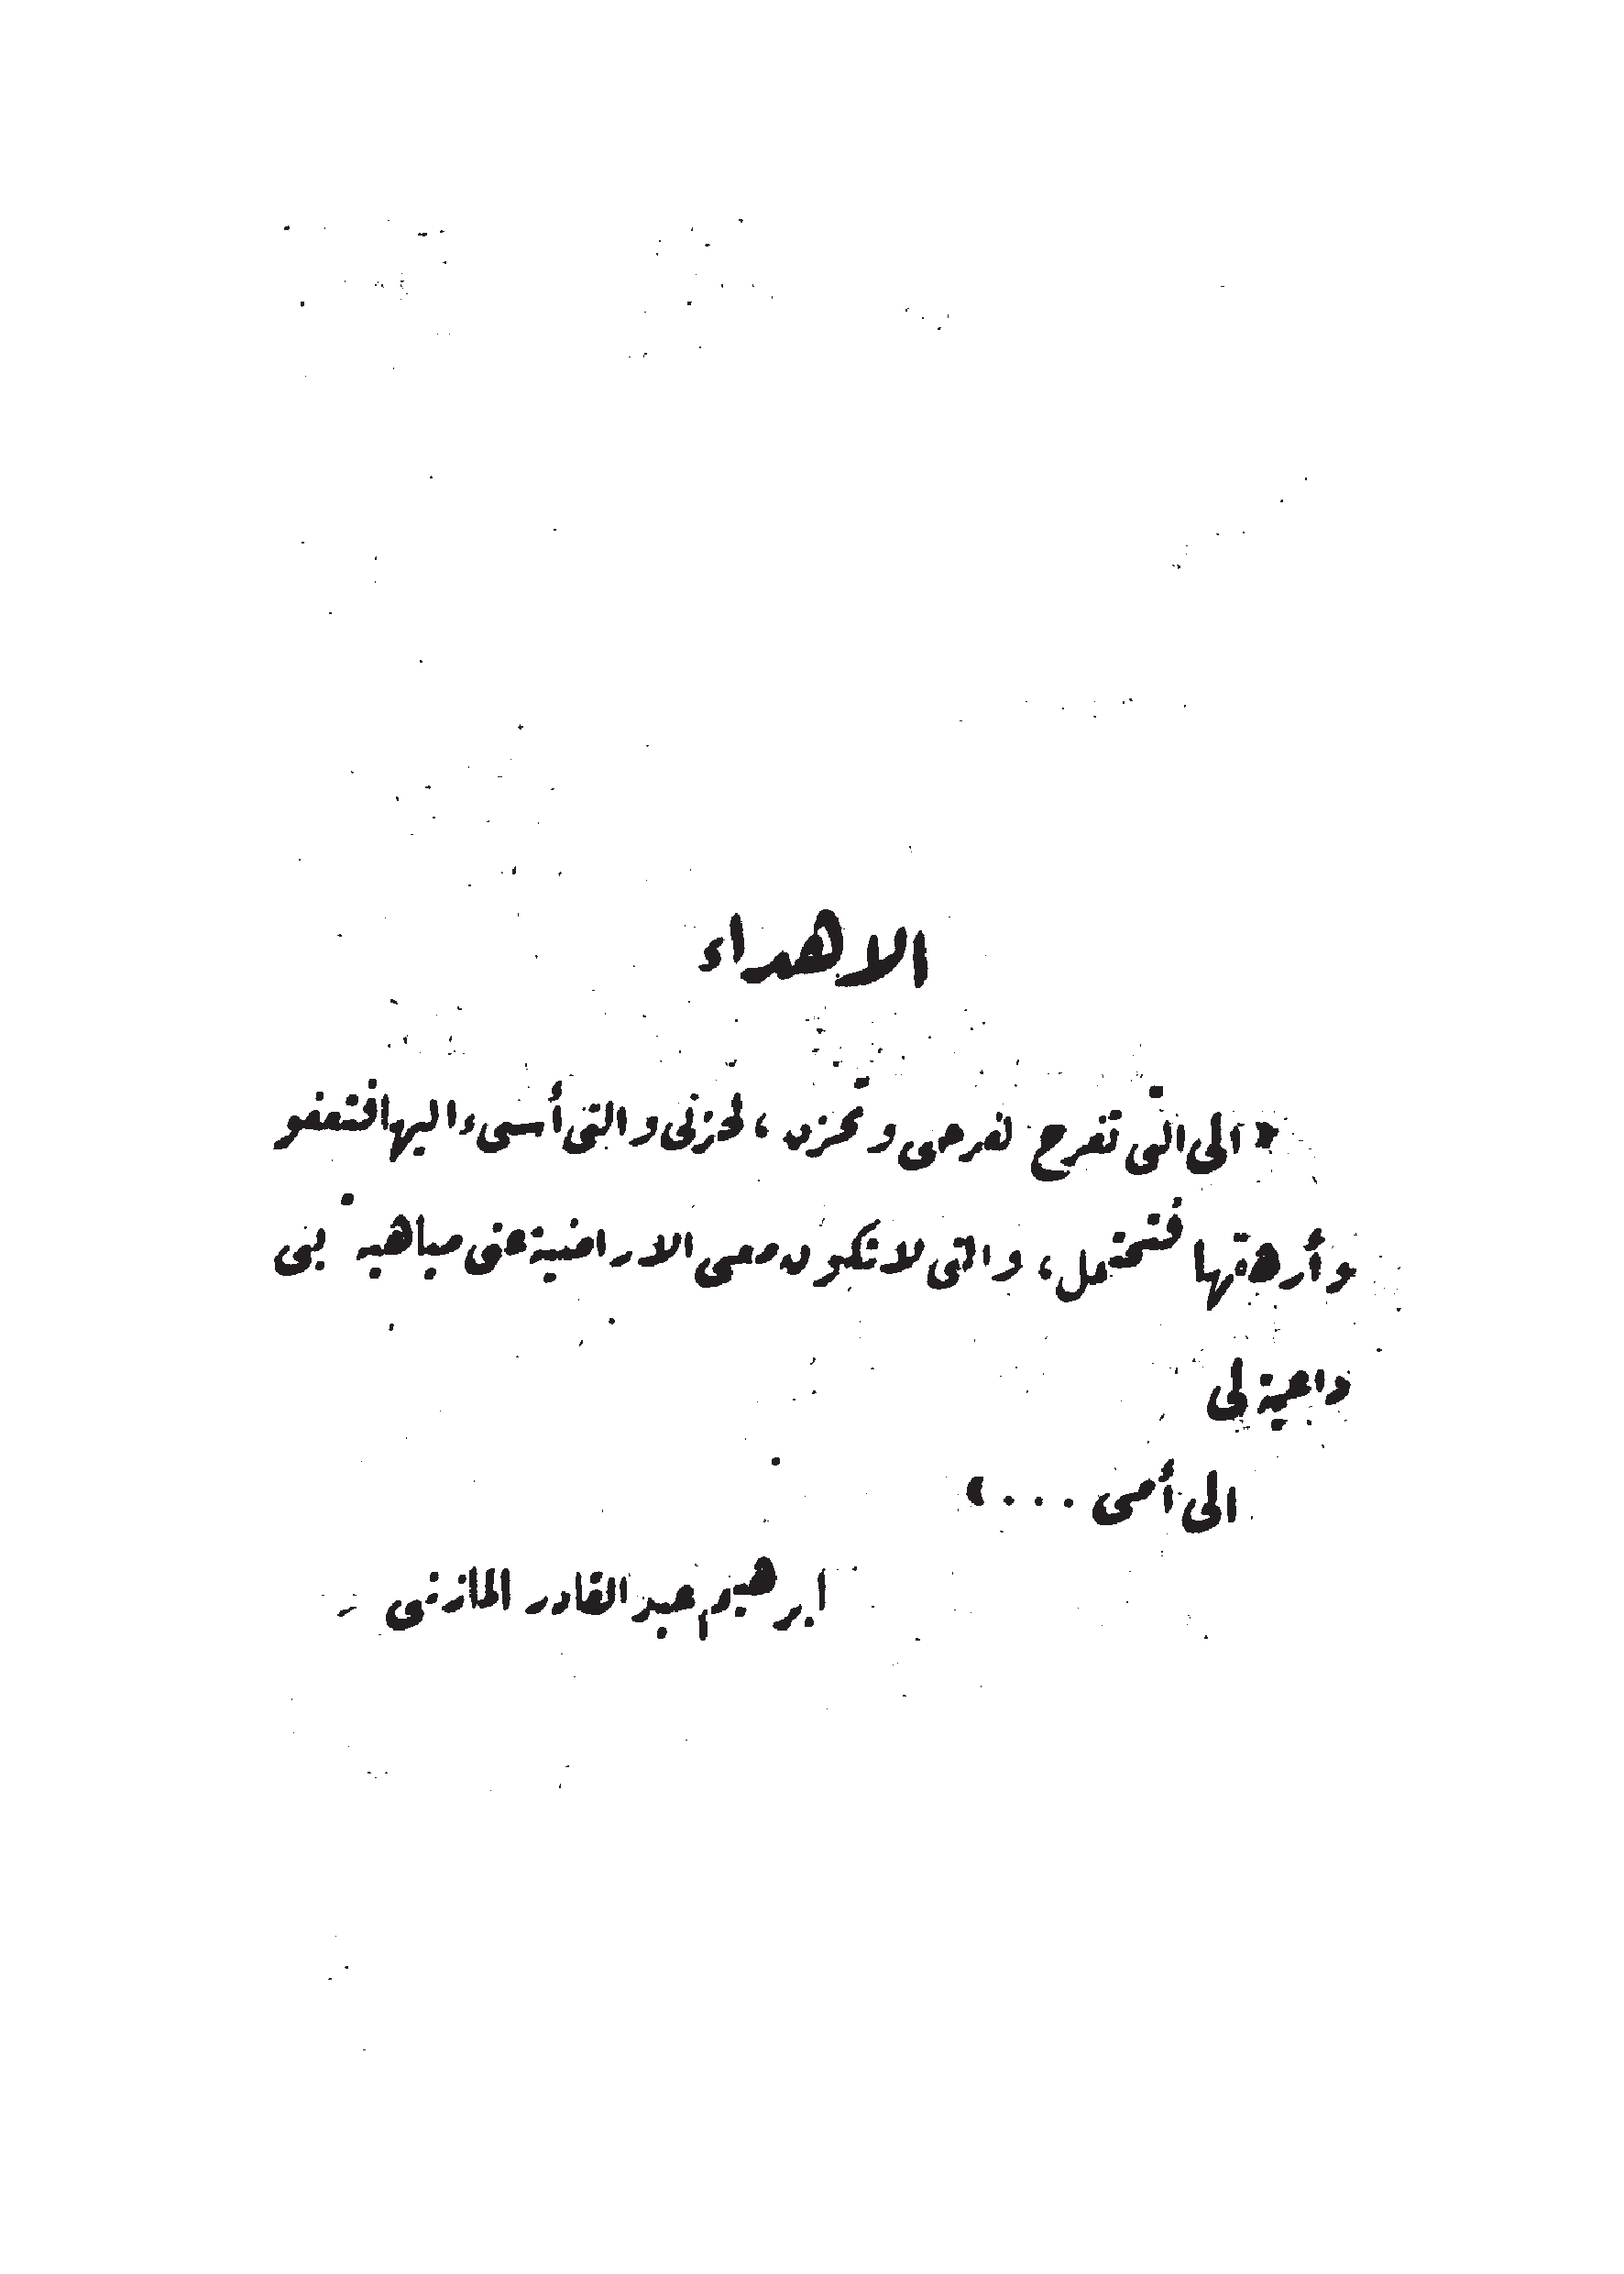 الاهداء
« الى التى تفرح لفرحى وتحزن ، لحزنى والتى أسىء اليها فتعفو
وأرهقها فتحتمل ، والتى لا تكون معى الا راضية عنى مباهية بى
داعية لى
الى أمى . . . »
ابرهيم عبد القادر المازنى